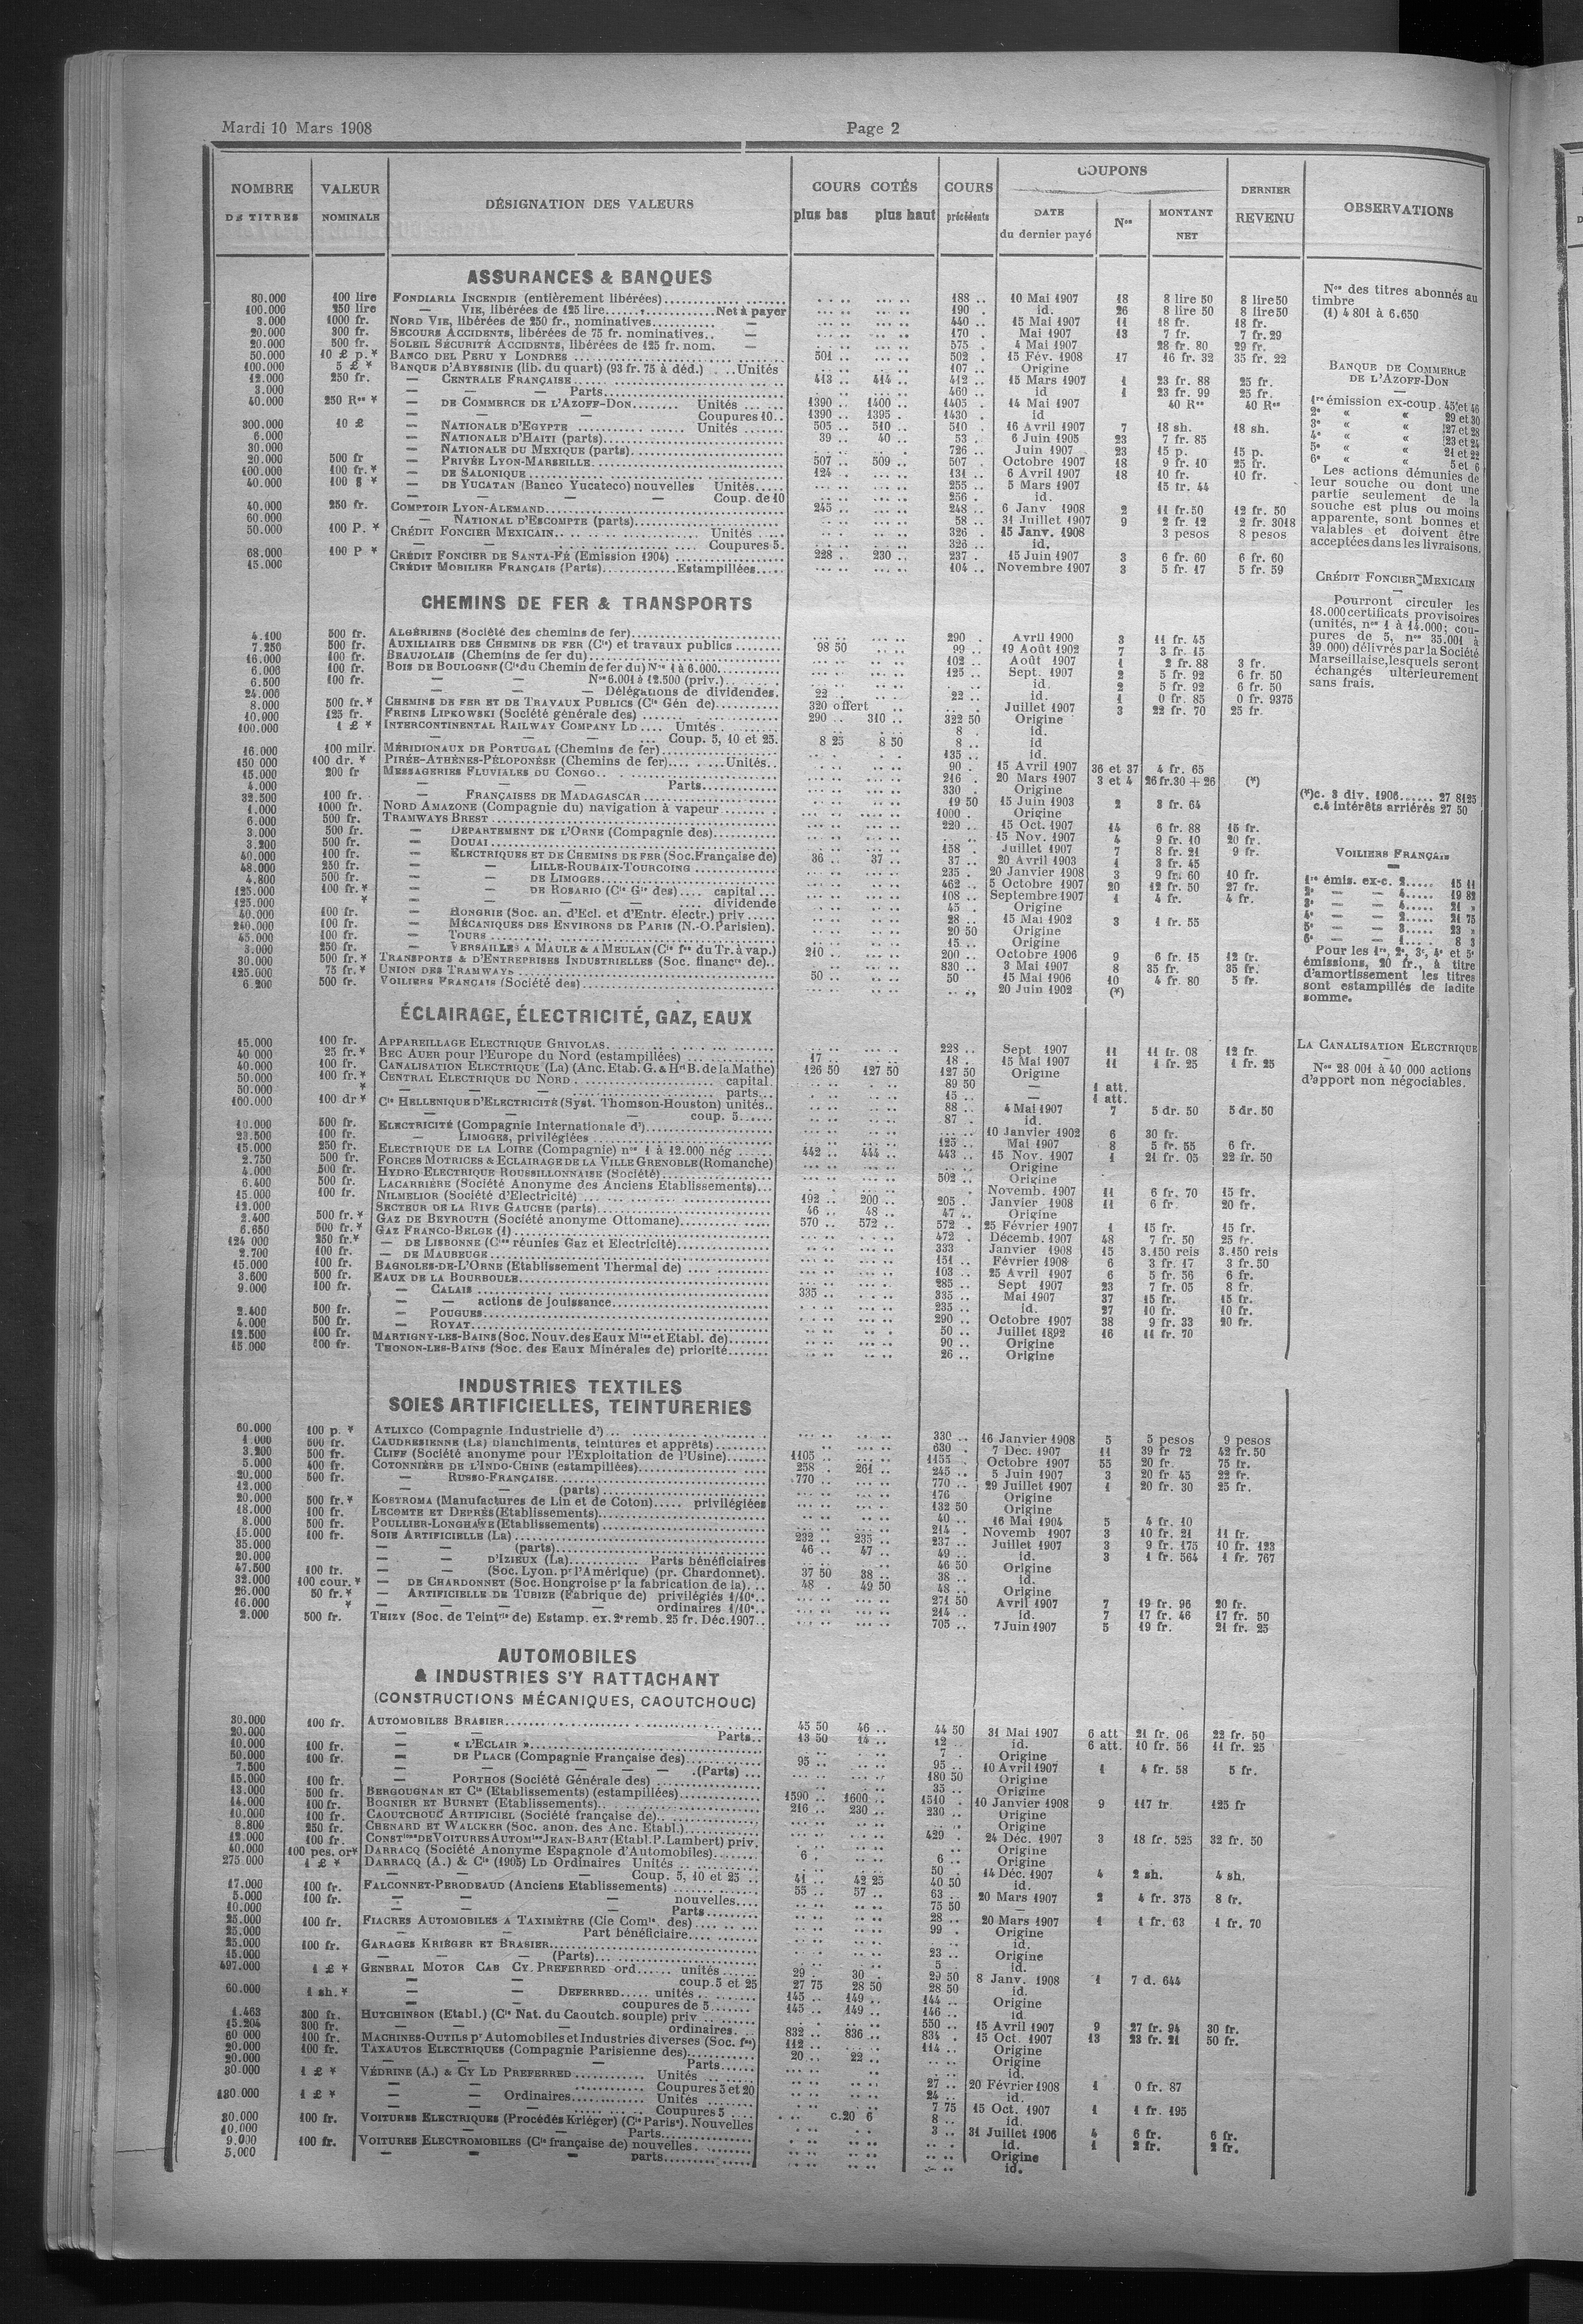 Mardi 10 Mars 1908 Page 2
NOMBRE DE TITRES VALEUR NOMINALE DÉSIGNATION DES VALEURS COURS COTÉS plus bas plus haut COURS précédents COUPONS DATE du dernier payé Nos MONTANT NET DERNIER REVENU OBSERVATIONS
ASSURANCES & BANQUES
80.000 100 lire FONDIARIA INCENDIE (entièrement libérées) 188 .. 10 Mai 1907 18 8 lire 50 8 lire 50
100.000 250 lire — VIE, libérées de 125 lire Net à payer 190 . id. 26 8 lire 50 8 lire 50
3.000 1000 fr. NORD VIE, libérées de 250 fr., nominatives — 440 .. 15 Mai 1907 11 18 fr. 18 fr.
20.000 300 fr. SECOURS ACCIDENTS, libérées de 75 fr. nominatives — 170 . Mai 1907 13 7 fr. 7 fr. 29
20.000 500 fr. SOLEIL SÉCURITÉ ACCIDENTS, libérées de 125 fr. nom. — 575 . 4 Mai 1907 28 fr. 80 29 fr.
50.000 10 £ p. * BANCO DEL PERU Y LONDRES 501 .. 502 .. 15 Fév. 1908 17 16 fr. 32 35 fr. 22
100.000 5 £ * BANQUE D'ABYSSINIE (lib. du quart) (93 fr. 75 à déd.) Unités 107 .. Origine
12.000 250 fr. — CENTRALE FRANÇAISE 413 .. 414 .. 412 .. 15 Mars 1907 1 23 fr. 88 25 fr.
3.000 — — Parts 460 .. id 1 23 fr. 99 25 fr.
40.000 250 Res * — DE COMMERCE DE L'AZOFF-DON Unités 1390 .. 1400 .. 1405 .. 14 Mai 1907 40 Res 40 Res
— — — Coupures 10 1390 .. 1395 . 1430 . id
300.000 10 £ — NATIONALE D'EGYPTE Unités 505 .. 510 .. 510 . 16 Avril 1907 7 18 sh. 18 sh.
6.000 — NATIONALE D'HAITI (parts) 39 .. 40 .. 53 . 6 Juin 1905 23 7 fr. 85
30.000 — NATIONALE DU MEXIQUE (parts) 726 .. Juin 1907 23 15 p. 15 p.
20.000 500 fr — PRIVÉE LYON-MARSEILLE 507 .. 509 .. 507 . Octobre 1907 18 9 fr. 10 25 fr.
100.000 100 fr. * — DE SALONIQUE 124 .. 131 .. 6 Avril 1907 18 10 fr. 10 fr.
40.000 100 $ * — DE YUCATAN (Banco Yucateco) nouvelles Unités 255 .. 5 Mars 1907 15 fr. 44
— — — Coup. de 10 256 . id.
40.000 250 fr. COMPTOIR LYON-ALEMAND 245 .. 248 .. 6 Janv 1908 2 11 fr. 50 12 fr. 50
60.000 — NATIONAL D'ESCOMPTE (parts) 58 .. 31 Juillet 1907 9 2 fr. 12 2 fr. 3018
50.000 100 P. * CRÉDIT FONCIER MEXICAIN Unités 326 . 15 Janv. 1908 3 pesos 8 pesos
— — Coupures 5. 326 .. id.
68.000 100 P * CRÉDIT FONCIER DE SANTA-FÉ (Emission 1904) 228 .. 230 .. 237 . 15 Juin 1907 3 6 fr. 60 6 fr. 60
15.000 CRÉDIT MOBILIER FRANÇAIS (Parts) Estampillées 104 .. Novembre 1907 3 5 fr. 17 5 fr. 59
CHEMINS DE FER & TRANSPORTS
4.100 500 fr. ALGÉRIENS (Société des chemins de fer) 290 . Avril 1900 3 11 fr. 45
7.250 500 fr. AUXILIAIRE DES CHEMINS DE FER (Cie) et travaux publics 98 50 99 .. 19 Août 1902 7 3 fr. 15
16.000 100 fr. BEAUJOLAIS (Chemins de fer du) 102 .. Août 1907 1 2 fr. 88 3 fr.
6.000 100 fr. BOIS DE BOULOGNE (Cie du Chemin de fer du) Nos 1 à 6.000 125 .. Sept. 1907 2 5 fr. 92 6 fr. 50
6.500 100 fr. — — Nos 6.001 à 12.500 (priv.) id. 2 5 fr. 92 6 fr. 50
24.000 — — Délégations de dividendes. 22 .. 22 .. id. 1 0 fr. 85 0 fr. 9375
8.000 500 fr. * CHEMINS DE FER ET DE TRAVAUX PUBLICS (Cie Gén de) 320 offert Juillet 1907 3 22 fr. 70 25 fr.
10.000 125 fr. FREINS LIPKOWSKI (Société générale des) 290 .. 310 .. 322 50 Origine
100.000 1 £ * INTERCONTINENTAL RAILWAY COMPANY LD Unités 8 . id.
— — Coup. 5, 10 et 25. 8 25 8 50 8 .. id
16.000 100 milr. MÉRIDIONAUX DE PORTUGAL (Chemins de fer) 135 .. id.
150 000 100 dr. * PIRÉE-ATHÈNES-PÉLOPONÈSE (Chemins de fer) Unités 90 . 15 Avril 1907 36 et 37 4 fr. 65
15.000 200 fr MESSAGERIES FLUVIALES DU CONGO 216 . 20 Mars 1907 3 et 4 26 fr. 30 + 26 (*)
4.000 — — Parts 330 . Origine
32.500 100 fr. — FRANÇAISES DE MADAGASCAR 19 50 15 Juin 1903 2 3 fr. 64
1.000 1000 fr. NORD AMAZONE (Compagnie du) navigation à vapeur 1000 . Origine
6.000 500 fr. TRAMWAYS BREST 220 .. 15 Oct. 1907 14 6 fr. 88 15 fr.
3.000 500 fr. — DÉPARTEMENT DE L'ORNE (Compagnie des) 15 Nov. 1907 4 9 fr. 10 20 fr.
3.200 500 fr. — DOUAI 158 . Juillet 1907 7 8 fr. 21 9 fr.
40.000 100 fr. — ELECTRIQUES ET DE CHEMINS DE FER (Soc. Française de) 36 .. 37 .. 37 .. 20 Avril 1903 1 3 fr. 45
48.000 250 fr. — — LILLE-ROUBAIX-TOURCOING 235 . 20 Janvier 1908 3 9 fr. 60 10 fr.
4.800 500 fr. — — DE LIMOGES 462 .. 5 Octobre 1907 20 12 fr. 50 27 fr.
125.000 100 fr. * — — DE ROSARIO (Cie Gle des) capital 108 .. Septembre 1907 1 4 fr. 4 fr.
125.000 * — — — dividende 45 . Origine
40.000 100 fr. — HONGRIE (Soc. an. d'Ecl. et d'Entr. électr.) priv 28 .. 15 Mai 1902 3 1 fr. 55
240.000 100 fr. — MÉCANIQUES DES ENVIRONS DE PARIS (N.-O. Parisien). 20 50 Origine
45.000 100 fr. — TOURS 15 .. Origine
3.000 250 fr. — VERSAILLES A MAULE & A MEULAN (Cie fse du Tr. à vap.) 210 .. 200 .. Octobre 1906 9 6 fr. 15 12 fr.
30.000 500 fr. * TRANSPORTS & D'ENTREPRISES INDUSTRIELLES (Soc. financre de) 830 .. 3 Mai 1907 8 35 fr. 35 fr.
125.000 75 fr. * UNION DES TRAMWAYS 50 .. 50 15 Mai 1906 10 4 fr. 80 5 fr.
6.200 500 fr. VOILIERS FRANÇAIS (Société des) 20 Juin 1902 (*)
ÉCLAIRAGE, ÉLECTRICITÉ, GAZ, EAUX
15.000 100 fr. APPAREILLAGE ELECTRIQUE GRIVOLAS 228 .. Sept 1907 11 11 fr. 08 12 fr.
40 000 25 fr. * BEC AUER pour l'Europe du Nord (estampillées) 17 .. 18 .. 15 Mai 1907 11 1 fr. 25 1 fr. 25
40.000 100 fr. CANALISATION ELECTRIQUE (La) (Anc. Etab. G. & Hri B. de la Mathe) 126 50 127 50 127 50 Origine
50.000 100 fr. * CENTRAL ELECTRIQUE DU NORD capital. 89 50 — 1 att.
50.000 * — — parts 15 .. — 1 att.
100.000 100 dr * Cie HELLENIQUE D'ELECTRICITÉ (Syst. Thomson-Houston) unités 88 .. 4 Mai 1907 7 5 dr. 50 5 dr. 50
— — coup. 5 87 . id.
10.000 500 fr. ELECTRICITÉ (Compagnie Internationale d') 10 Janvier 1902 6 30 fr.
23.500 100 fr. — LIMOGES, privilégiées 125 .. Mai 1907 8 5 fr. 55 6 fr.
15.000 250 fr. ELECTRIQUE DE LA LOIRE (Compagnie) nos 1 à 12.000 nég 442 .. 444 .. 443 .. 15 Nov. 1907 1 21 fr. 05 22 fr. 50
2.750 500 fr. FORCES MOTRICES & ECLAIRAGE DE LA VILLE GRENOBLE (Romanche) Origine
4.000 500 fr. HYDRO-ELECTRIQUE ROUSSILLONNAISE (Société) 502 .. Origine
6.400 500 fr. LACARRIÈRE (Société Anonyme des Anciens Etablissements) Novemb. 1907 11 6 fr. 70 15 fr.
15.000 100 fr. NILMELIOR (Société d'Electricité) 192 .. 200 .. 205 . Janvier 1908 11 6 fr. 20 fr.
12.000 SECTEUR DE LA RIVE GAUCHE (parts) 46 .. 48 .. 47 .. Origine
2.400 500 fr. * GAZ DE BEYROUTH (Société anonyme Ottomane) 570 .. 572 .. 572 . 25 Février 1907 1 15 fr. 15 fr.
6.650 500 fr. * GAZ FRANCO-BELGE (1) 472 . Décemb. 1907 48 7 fr. 50 25 fr.
124 000 250 fr. * — DE LISBONNE (Cies réunies Gaz et Electricité) 333 Janvier 1908 15 3.150 reis 3.150 reis
2.700 100 fr. — DE MAUBEUGE 151 . Février 1908 6 3 fr. 17 3 fr. 50
15.000 100 fr. BAGNOLES-DE-L'ORNE (Etablissement Thermal de) 103 .. 25 Avril 1907 6 5 fr. 56 6 fr.
3.600 500 fr. EAUX DE LA BOURBOULE 285 .. Sept 1907 23 7 fr. 05 8 fr.
9.000 100 fr. — CALAIS 335 .. 335 .. Mai 1907 37 15 fr. 15 fr.
— — actions de jouissance 235 .. id. 27 10 fr. 10 fr.
2.400 500 fr. — POUGUES 290 .. Octobre 1907 38 9 fr. 33 20 fr.
4.000 500 fr. — ROYAT 50 .. Juillet 1892 16 11 fr. 70
12.500 100 fr. MARTIGNY-LES-BAINS (Soc. Nouv. des Eaux Mles et Etabl. de) 90 .. Origine
15 000 100 fr. THONON-LES-BAINS (Soc. des Eaux Minérales de) priorité 26 .. Origine
INDUSTRIES TEXTILES
SOIES ARTIFICIELLES, TEINTURERIES
60.000 100 p. * ATLIXCO (Compagnie Industrielle d') 330 .. 16 Janvier 1908 5 5 pesos 9 pesos
1 000 500 fr. CAUDRÉSIENNE (La) blanchiments, teintures et apprêts) 630 . 7 Déc. 1907 11 39 fr 72 42 fr. 50
3.200 500 fr. CLIFF (Société anonyme pour l'Exploitation de l'Usine) 1105 .. 1155 . Octobre 1907 55 20 fr. 75 fr.
5.000 400 fr. COTONNIÈRE DE L'INDO-CHINE (estampillées) 258 . 261 .. 245 .. 5 Juin 1907 3 20 fr. 45 22 fr.
20.000 500 fr. — RUSSO-FRANÇAISE 770 .. 770 .. 29 Juillet 1907 1 20 fr. 30 25 fr.
12.000 — — (parts) 176 Origine
20.000 500 fr. * KOSTROMA (Manufactures de Lin et de Coton) privilégiées 132 50 Origine
18.000 100 fr. LECOMTE ET DEPRÈS (Etablissements) 40 .. 16 Mai 1904 5 4 fr. 10
8.000 500 fr. POULLIER-LONGHAYE (Etablissements) 214 . Novemb 1907 3 10 fr. 21 11 fr.
15.000 100 fr. SOIE ARTIFICIELLE (La) 232 .. 235 .. 237 .. Juillet 1907 3 9 fr. 175 10 fr. 123
35.000 — — (parts) 46 .. 47 .. 49 .. id. 3 1 fr. 564 1 fr. 767
20.000 — — D'IZIEUX (La) Parts bénéficiaires 46 50 Origine
47.500 100 fr. — — (Soc. Lyon. pr l'Amérique) (pr. Chardonnet). 37 50 38 .. 38 .. id.
32.000 100 cour. * — DE CHARDONNET (Soc. Hongroise pr la fabrication de la) 48 . 49 50 48 .. Origine
26.000 50 fr. * — ARTIFICIELLE DE TUBIZE (Fabrique de) privilégiés 1/10e 271 50 Avril 1907 7 19 fr. 96 20 fr.
16.000 * — — — ordinaires 1/10e 214 .. id. 7 17 fr. 46 17 fr. 50
2.000 500 fr. THIZY (Soc. de Teintrie de) Estamp. ex. 2e remb. 25 fr. Déc. 1907 705 .. 7 Juin 1907 5 19 fr. 21 fr. 25
AUTOMOBILES
& INDUSTRIES S'Y RATTACHANT
(CONSTRUCTIONS MÉCANIQUES, CAOUTCHOUC)
30.000 100 fr. AUTOMOBILES BRASIER 45 50 46 .. 44 50 31 Mai 1907 6 att 21 fr. 06 22 fr. 50
20.000 — — Parts 13 50 14 .. 12 .. id. 6 att. 10 fr. 56 11 fr. 25
10.000 100 fr. — « L'ECLAIR » 7 . Origine
50.000 100 fr. — DE PLACE (Compagnie Française des) 95 .. 95 .. 10 Avril 1907 1 4 fr. 58 5 fr.
7.500 — — — (Parts) 180 50 Origine
15.000 100 fr. — PORTHOS (Société Générale des) 35 .. Origine
13.000 500 fr. BERGOUGNAN ET Cie (Etablissements) (estampillées) 1590 .. 1600 .. 1510 . 10 Janvier 1908 9 117 fr. 125 fr
14.000 100 fr. BOGNIER ET BURNET (Etablissements) 216 .. 230 .. 230 .. Origine
10.000 100 fr. CAOUTCHOUC ARTIFICIEL (Société française de) Origine
8.800 250 fr. CHENARD ET WALCKER (Soc. anon. des Anc. Etabl.) 429 . 24 Déc. 1907 3 18 fr. 525 32 fr. 50
12.000 100 fr. CONSTions DE VOITURES AUTOMles JEAN-BART (Etabl. P. Lambert) priv. Origine
40.000 100 pes. or* DARRACQ (Société Anonyme Espagnole d'Automobiles) 6 . 6 .. Origine
275.000 1 £ * DARRACQ (A.) & Cie (1905) LD Ordinaires Unités 50 .. 14 Déc. 1907 4 2 sh. 4 sh.
— — Coup. 5, 10 et 25 41 .. 42 25 40 50 id.
17.000 100 fr. FALCONNET-PERODEAUD (Anciens Etablissements) 55 .. 57 .. 63 .. 20 Mars 1907 2 4 fr. 375 8 fr.
5.000 100 fr. — — — nouvelles 75 50 —
10.000 — — — Parts 28 ..
25.000 100 fr. FIACRES AUTOMOBILES A TAXIMÈTRE (Cie Comle des) 99 .. 20 Mars 1907 1 1 fr. 63 1 fr. 70
25.000 — — Part bénéficiaire Origine
25.000 100 fr. GARAGES KRIÉGER ET BRASIER 23 .. id.
15.000 — — — (Parts) 5 . Origine
497.000 1 £ * GENERAL MOTOR CAB CY. PREFERRED ord unités 29 . 30 . 29 50 8 Janv. 1908 1 7 d. 644
— — coup. 5 et 25 27 75 28 50 28 50 id.
60.000 1 sh. * — — DEFERRED unités 145 .. 149 .. 144 .. Origine
— — coupures de 5 145 .. 149 .. 146 .. id.
1.463 300 fr. HUTCHINSON (Etabl.) (Cie Nat. du Caoutch. souple) priv 550 .. 15 Avril 1907 9 27 fr. 94 30 fr.
15.204 300 fr. — — ordinaires 832 .. 836 .. 834 . 15 Oct. 1907 13 23 fr. 21 50 fr.
60 000 100 fr. MACHINES-OUTILS pr Automobiles et Industries diverses (Soc. fse) 112 .. 114 .. Origine
20.000 100 fr. TAXAUTOS ELECTRIQUES (Compagnie Parisienne des) 20 .. 22 .. Origine
20.000 — — — Parts id.
30.000 1 £ * VÉDRINE (A.) & CY LD PREFERRED Unités 27 .. 20 Février 1908 1 0 fr. 87
— Coupures 5 et 20 24 .. id.
130.000 1 £ * — — Ordinaires Unités 7 75 15 Oct. 1907 1 1 fr. 195
— — Coupures 5 8 .. id.
30.000 100 fr. VOITURES ELECTRIQUES (Procédés Kriéger) (Cie Parisne). Nouvelles c.20 6 3 .. 31 Juillet 1906 4 6 fr. 6 fr.
10.000 — — Parts id. 1 2 fr. 2 fr.
9.000 100 fr. VOITURES ELECTROMOBILES (Cie française de) nouvelles Origine
5.000 — — parts id.
Nos des titres abonnés au
timbre
(1) 4 801 à 6.650
BANQUE DE COMMERCE
DE L'AZOFF-DON
1re émission ex-coup. 45 et 46
2e « « 29 et 30
3e « « 27 et 28
4e « « 23 et 24
5e « « 21 et 22
6e « « 5 et 6
Les actions démunies de
leur souche ou dont une
partie seulement de la
souche est plus ou moins
apparente, sont bonnes et
valables et doivent être
acceptées dans les livraisons.
CRÉDIT FONCIER MEXICAIN
Pourront circuler les
18.000 certificats provisoires
(unités, nos 1 à 14.000; cou-
pures de 5, nos 35.001 à
39 000) délivrés par la Société
Marseillaise, lesquels seront
échangés ultérieurement
sans frais.
(*) c. 3 div. 1906 27 8125
c. 4 intérêts arriérés 27 50
VOILIERS FRANÇAIS
1re émis. ex-c. 2 15 11
2e — — 4 19 82
3e — — 4 21 »
4e — — 2 21 75
5e — — 3 23 »
6e — — 1 8 3
Pour les 1re, 2e, 3e, 4e et 5e
émissions, 20 fr., à titre
d'amortissement les titres
sont estampillés de ladite
somme.
LA CANALISATION ELECTRIQUE
Nos 28 001 à 40 000 actions
d'apport non négociables.